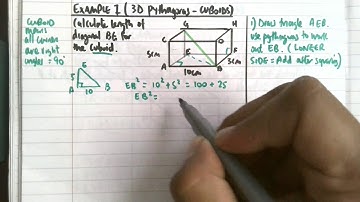 EXAMPLE 1 (3D Pythagoras - CUBOIDS)
CUBOID
means
all corners
are right
angles = 90°
Calculate length of
diagonal BG for
the Cuboid.
G
H
5cm
E
F
5cm
A
B
10cm
1) Draw triangle AEB.
use pythagoras to work
out EB. (LONGER
SIDE = Add after squaring)
E
5
A
10
B
EB² = 10² + 5² = 100 + 25
EB² =